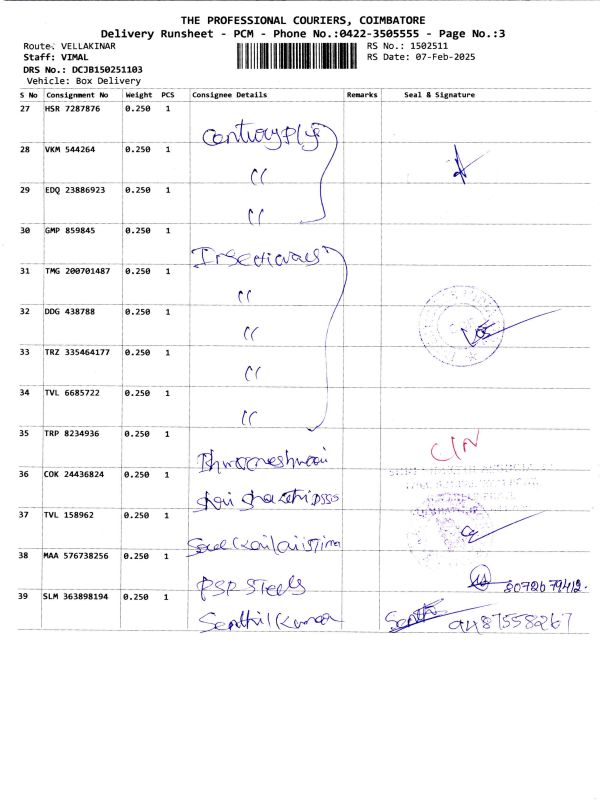 THE PROFESSIONAL COURIERS, COIMBATORE
Delivery Runsheet - PCM - Phone No.:0422-3505555 - Page No.:3
Route: VELLAKINAR RS No.: 1502511
Staff: VIMAL RS Date: 07-Feb-2025
DRS No.: DCJB150251103
Vehicle: Box Delivery
S No Consignment No Weight PCS Consignee Details Remarks Seal & Signature
27 HSR 7287876 0.250 1
28 VKM 544264 0.250 1
〃
29 EDQ 23886923 0.250 1
〃
30 GMP 859845 0.250 1
31 TMG 200701487 0.250 1
〃
32 DDG 438788 0.250 1
〃
33 TRZ 335464177 0.250 1
〃
34 TVL 6685722 0.250 1
〃
35 TRP 8234936 0.250 1
36 COK 24436824 0.250 1
37 TVL 158962 0.250 1
38 MAA 576738256 0.250 1
PSP Steels 8072679412.
39 SLM 363898194 0.250 1
Senthil Kumar 9487558267